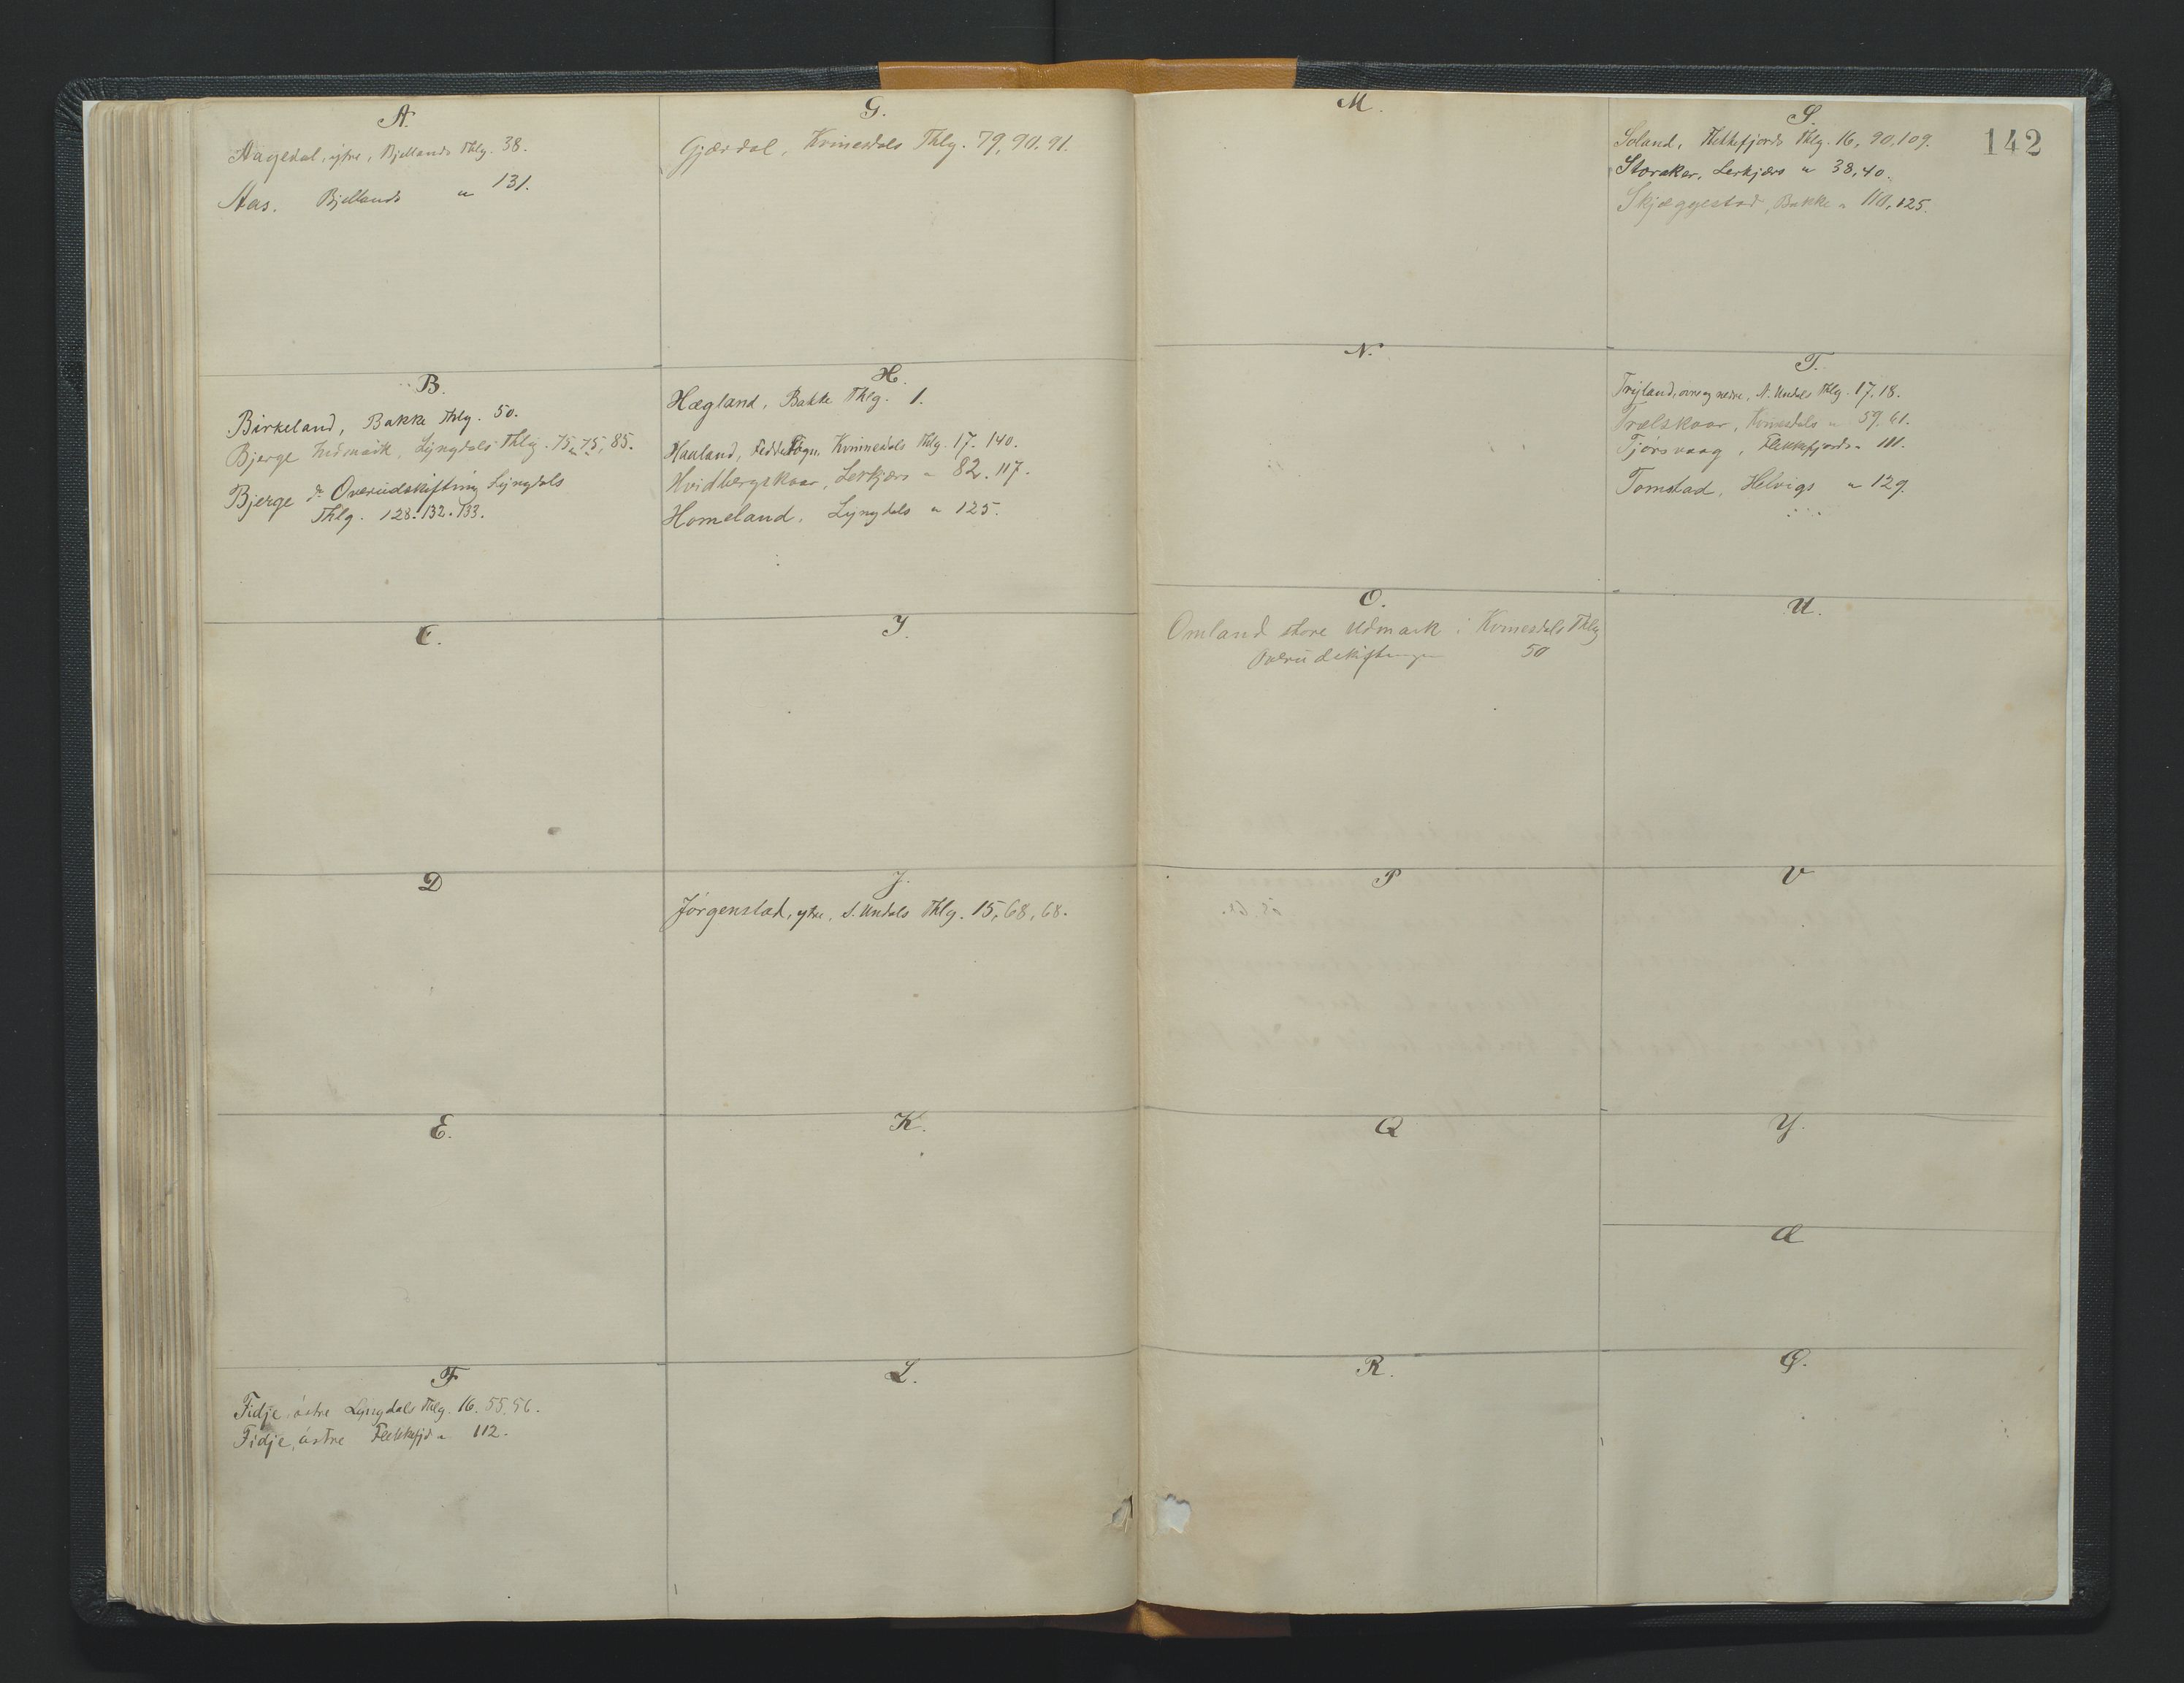 A.
Aagedal, ytre, Bjellands Thlg. 38.
Aas. Bjellands " 131.
B.
Birkeland, Bakke Thlg. 50.
Bjerge Udmark, Lyngdals Thlg. 75, 75, 85.
Bjerge do Overudskiftning Lyngdals
Thlg. 128. 132. 133.
C.
D
E.
F
Fidje, østre Lyngdals Thlg. 16. 55. 56.
Fidje, østre Flekkefjd " 112.
G.
Gjærdal, Kvinesdals Thlg. 79, 90. 91.
H.
Hægland, Bakke Thlg. 1.
Haaland, Fedde Sogn, Kvinnesdals Thlg. 17. 140.
Hvidbergskaar, Lerkjærs " 82. 117.
Homeland, Lyngdals " 125.
I.
J.
Jørgenstad, ytre, S. Undals Thlg. 15, 68, 68.
K.
L.
M.
N.
O.
Omland store Udmark i Kvinesdals Thlg
Overudskiftningen 50
P
Q
R.
S.
142
Soland, Flekkefjords Thlg. 16, 90, 109.
Storaker, Lerkjærs " 38, 40.
Skjæggestad, Bakke " 110, 125.
T.
Trijland, øvre og nedre, N. Undals Thlg. 17, 18.
Trælskaar, Kvinesdals " 59, 61.
Tjørsvaag, Flekkefjords " 111.
Tomstad, Helvigs " 129.
U.
V
Y.
Æ
Ø.